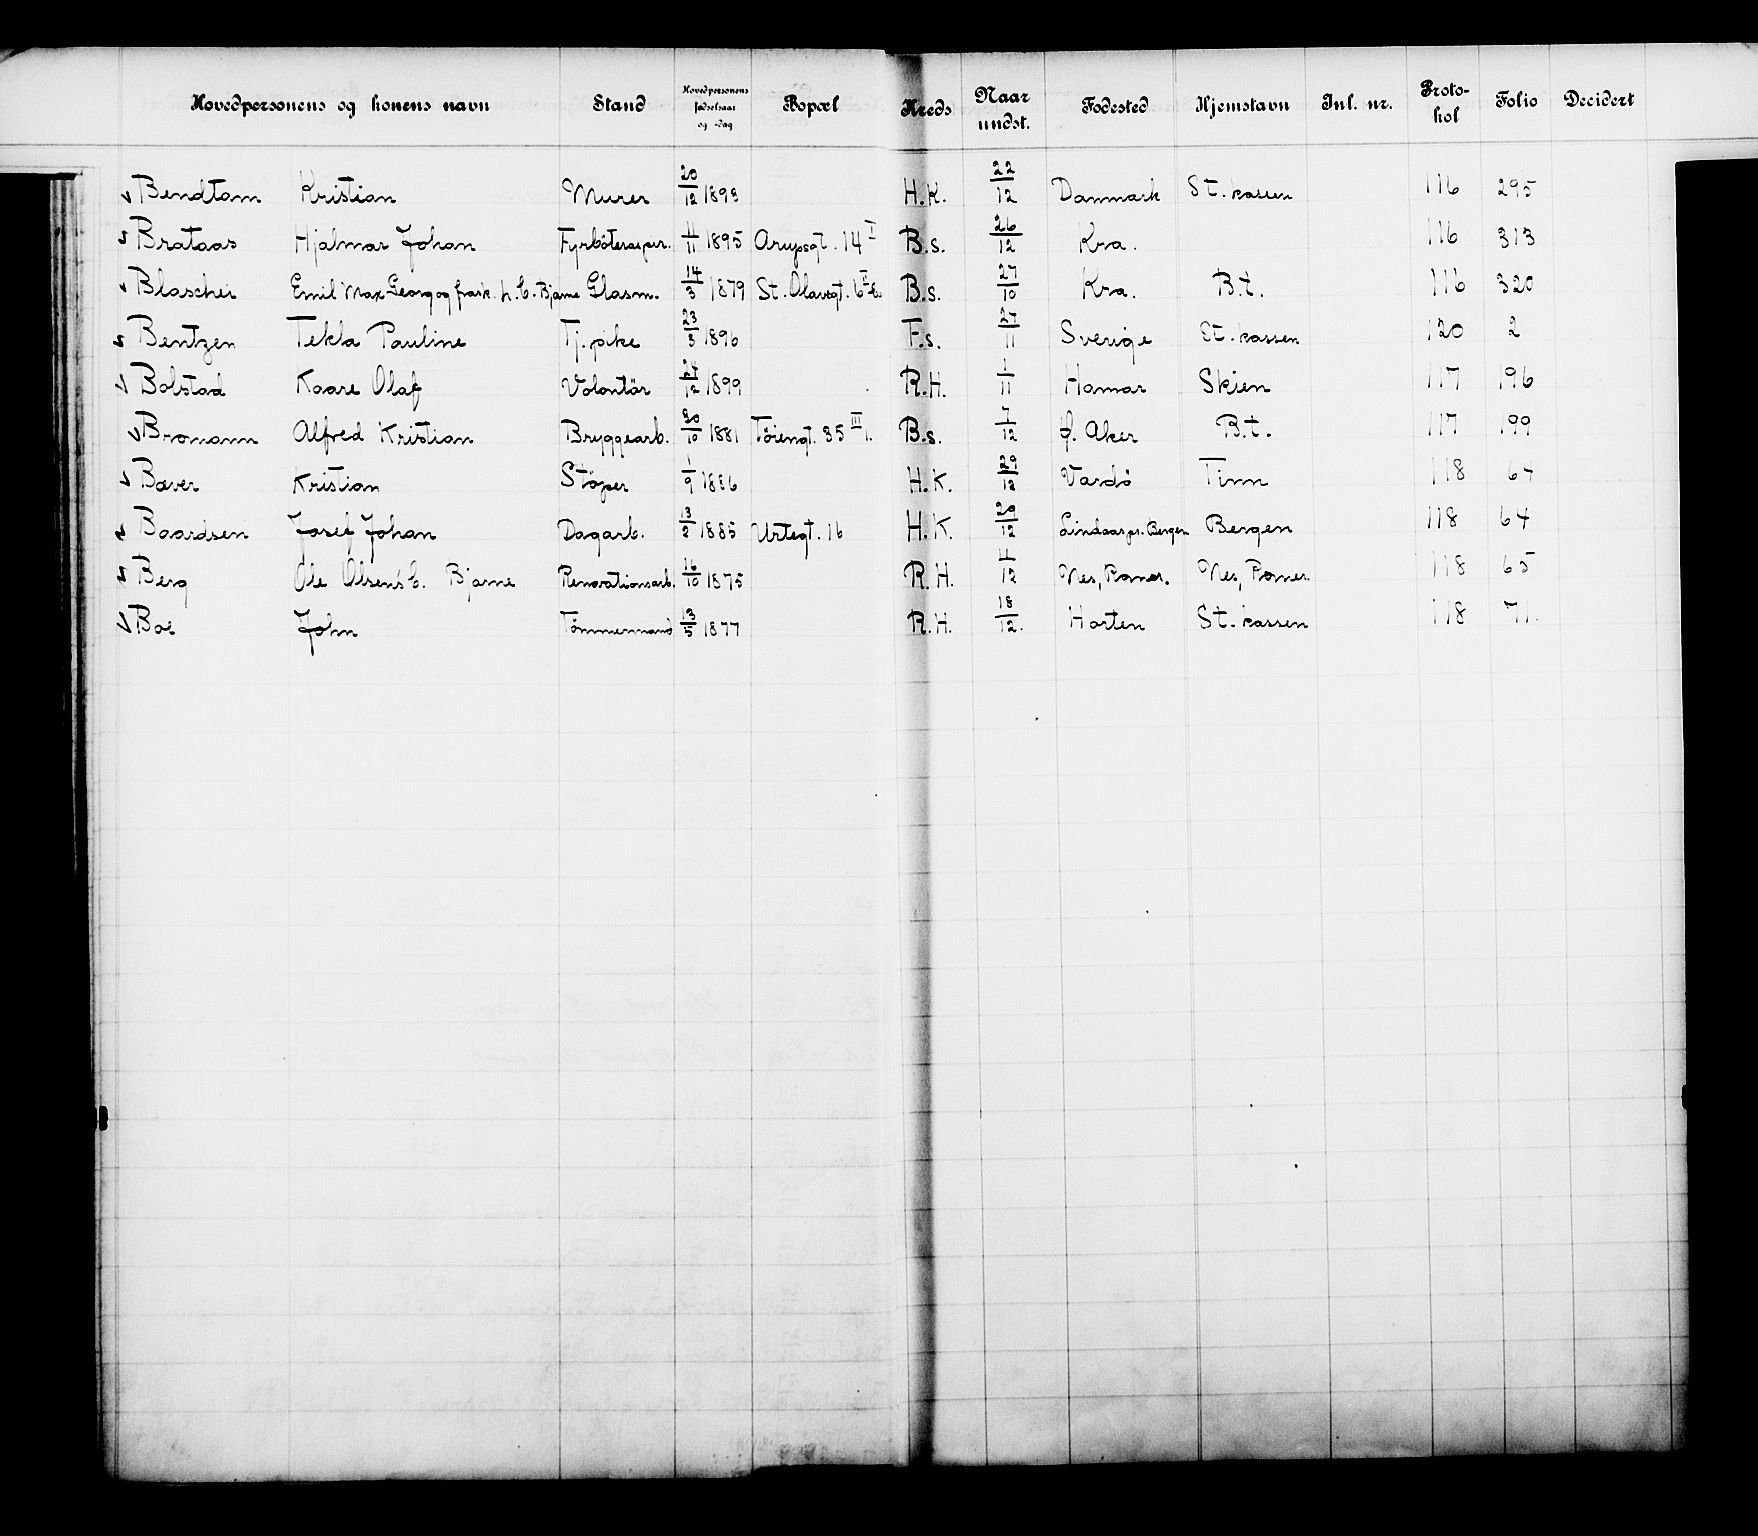 Hovedpersonens og konens navn Stand Hovedpersonens fødselsaar og -dag Bopæl Kreds Naar undst. Fødested Hjemstavn Jnl. nr. Protokol Folio Decidert
Bendtam Kristian Murer 20/12 1893 H.K. 22/12 Danmark St. kassen 116 295
Brataas Hjalmar Johan 11/11 1895 14 I B.s. 26/12 Kra. 116 313
Emil Max Georg og frask. h. b. Bjarne Glasm. 14/3 1879 St. Olavsgt. B.s. 27/10 Kra. B.t. 116 320
Bentzen Tekla Pauline Tj.pike 23/3 1896 F.s. 27/11 Sverige St. kassen 120 2
Bolstad Kaare Olaf Volontør 24/12 1899 R.H. 1/11 Hamar Skien 117 196
Bromann Alfred Kristian Bryggearb. 30/10 1881 Tøiengt. 35 III B.s. 7/12 Ø. Aker B.t. 117 199
Bæver Kristian Støper 1/9 1886 H.K. 29/12 Vardø Tinn 118 64
Baardsen Josef Johan Dagarb. 13/2 1885 Urtegt. 16 H.K. 29/12 Lindaas pr. Bergen Bergen 118 64
Berg Ole Olsen s b. Bjarne Renovationsarb. 16/10 1875 R.H. 11/12 Nes, Romer. Nes, Romer. 118 65
Boe John Tømmermand 13/5 1877 R.H. 18/12. Horten St. kassen 118 71.